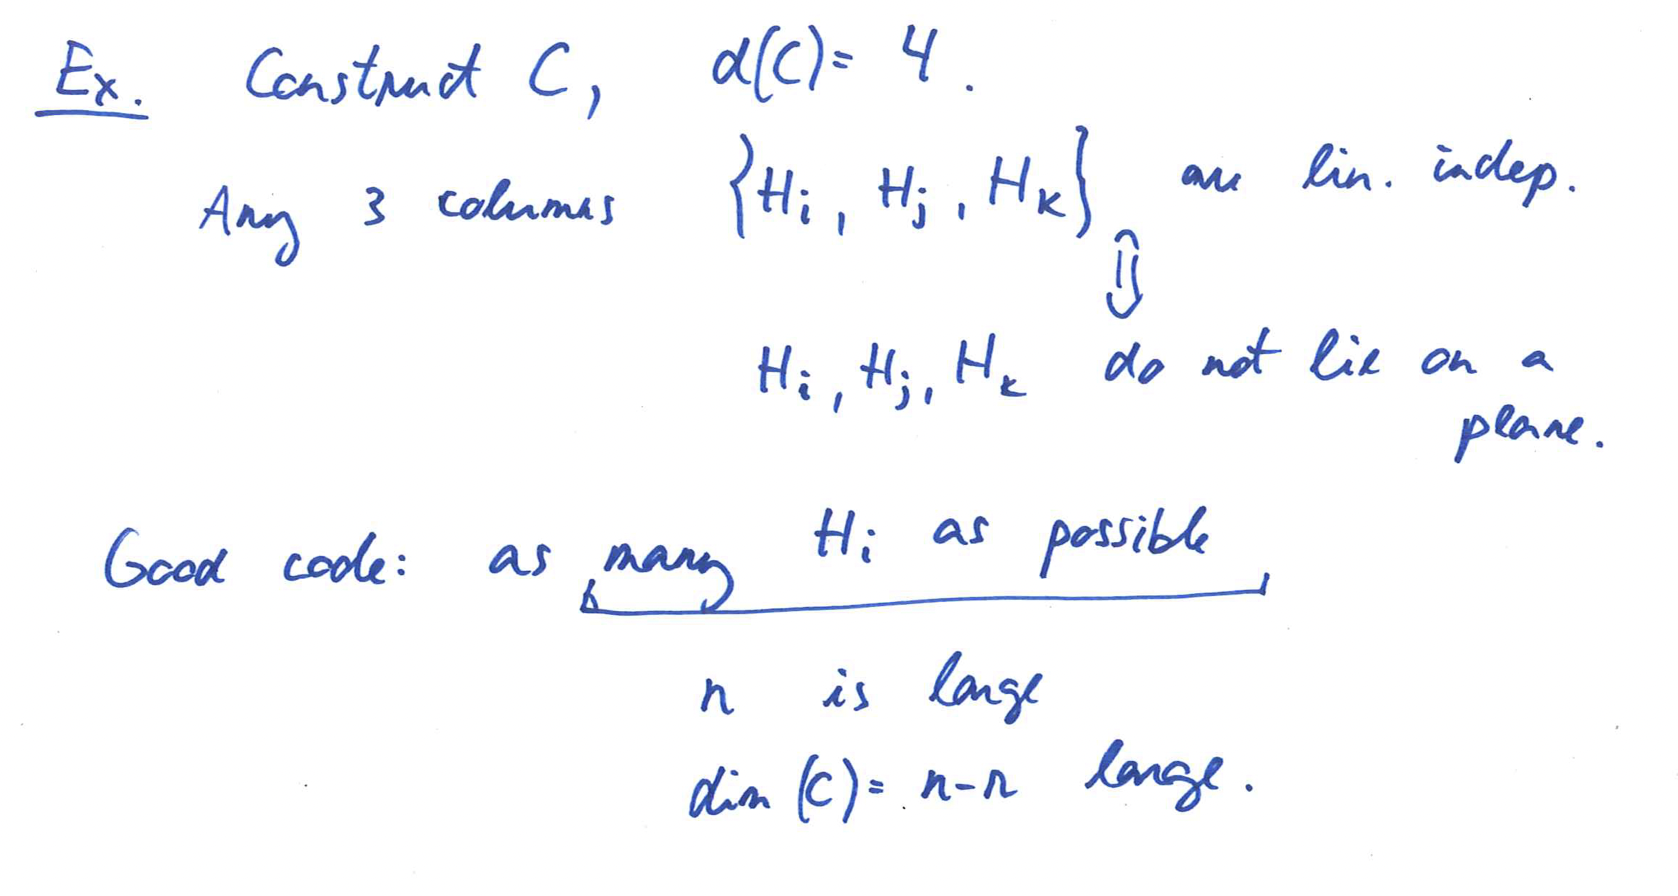 Ex. Construct C, d(C)= 4.
Any 3 columns {Hi, Hj, Hk} are lin. indep.
⇕
Hi, Hj, Hk do not lie on a
plane.
Good code: as many Hi as possible
n is large
dim (C)= n-r large.